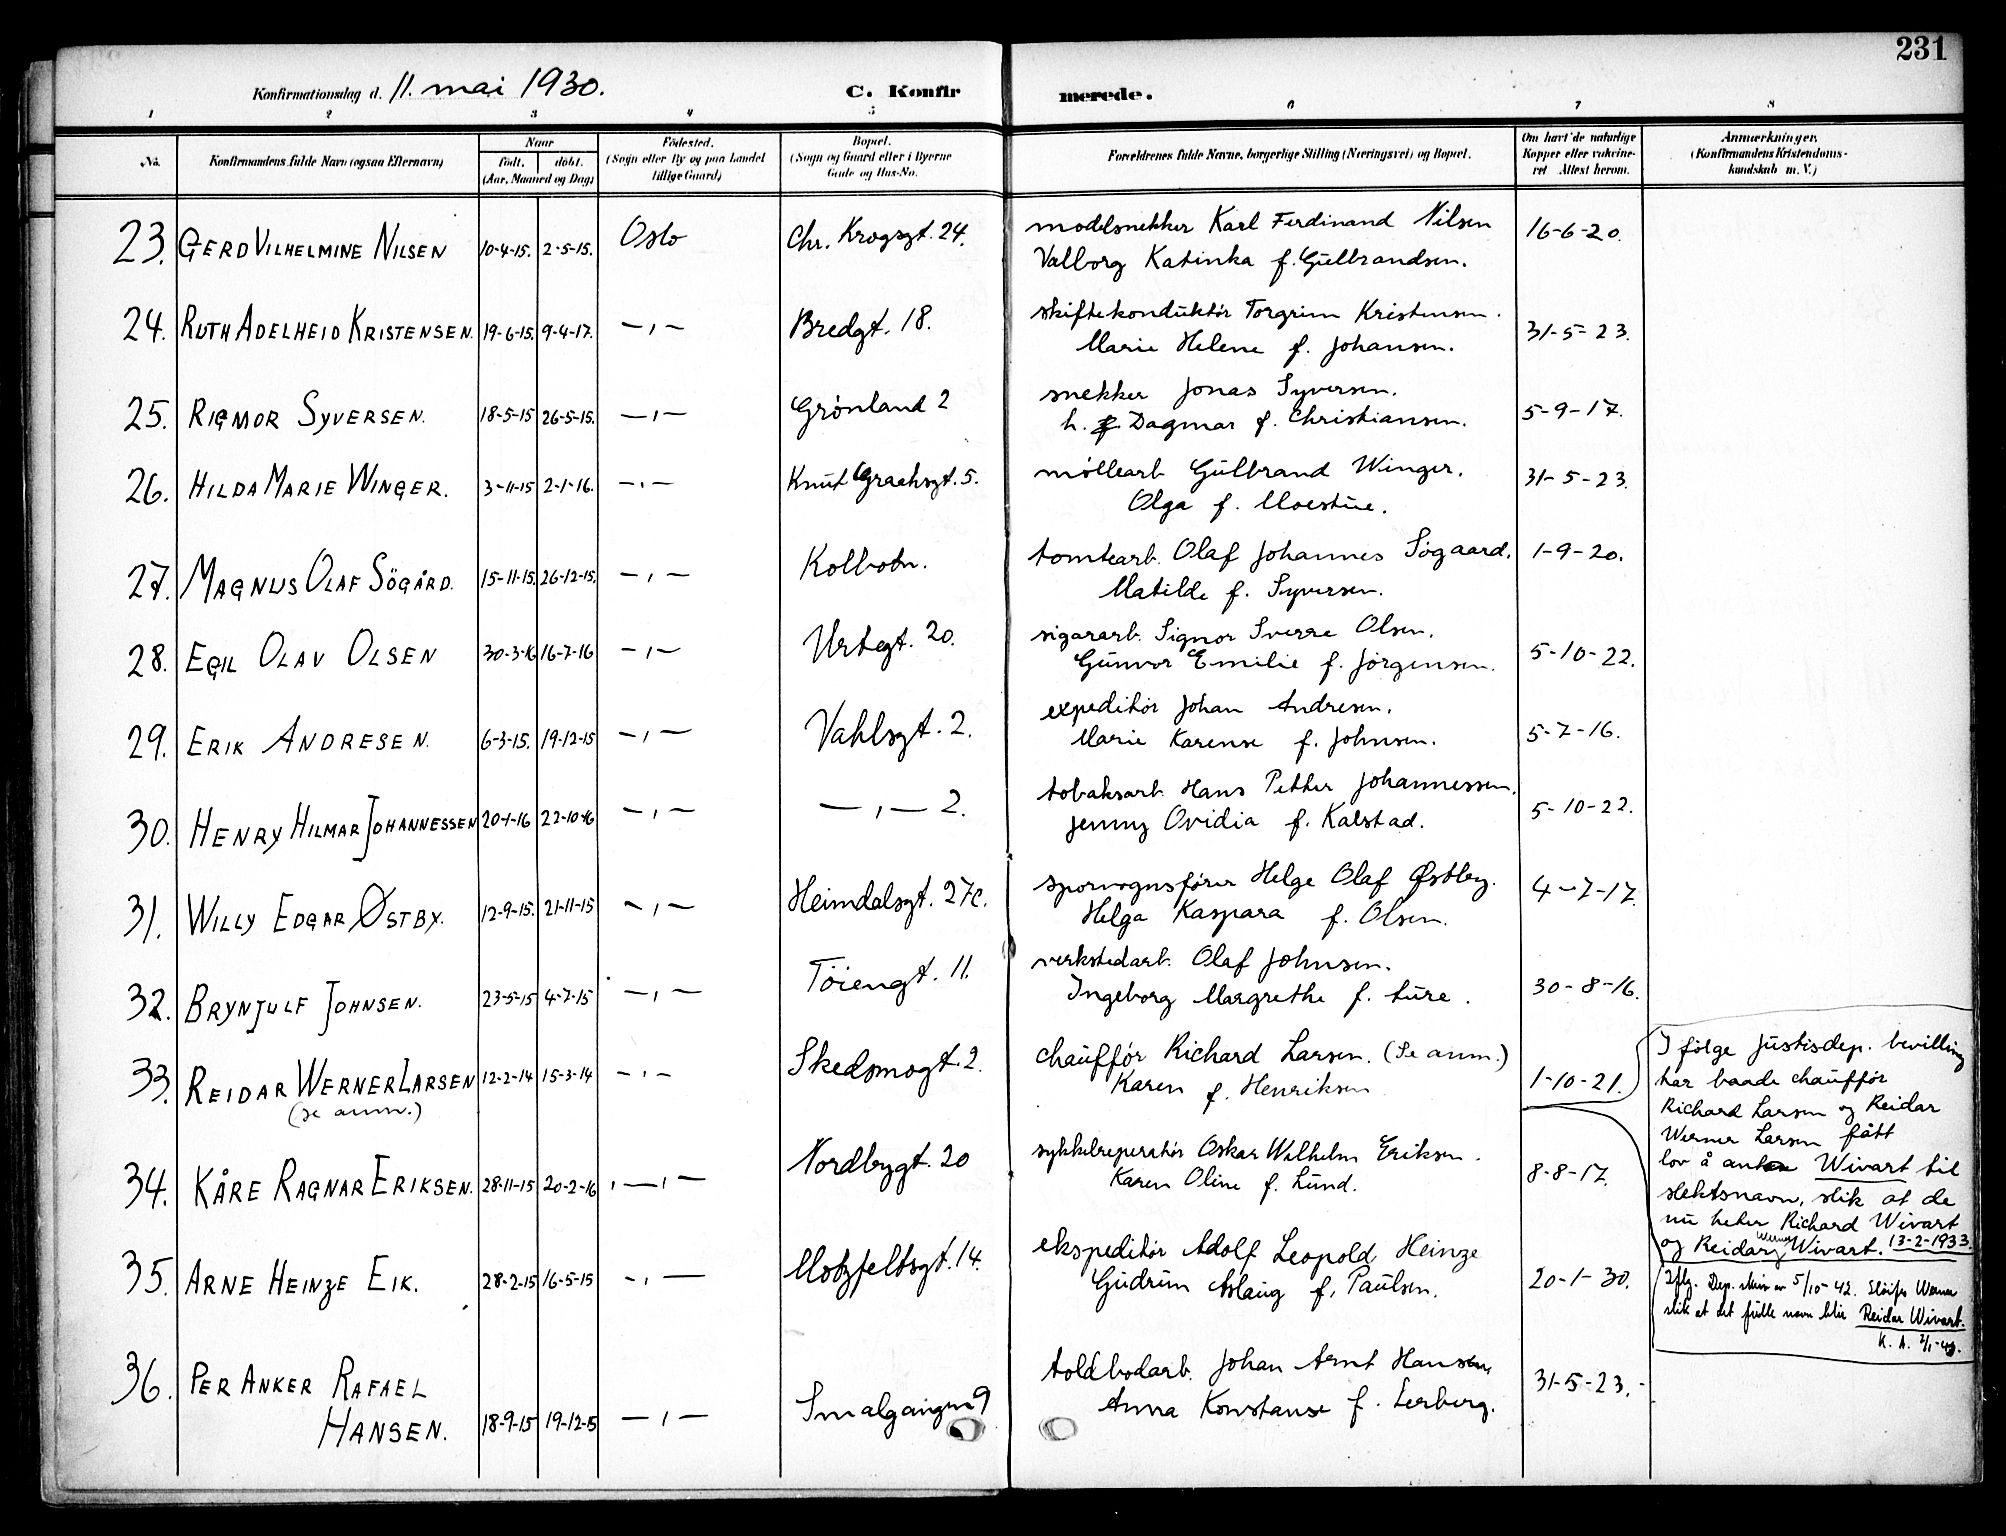 231
Konfirmationsdag d. 11. mai 1930. C. Konfirmerede.
1 2 3 4 5 6 7 8
No. Konfirmandens fulde Navn (ogsaa Efternavn) Naar født. døbt. (Aar, Maaned og Dag) Fødested. (Sogn eller By og paa Landet tillige Gaard) Bopæl. (Sogn og Gaard eller i Byerne Gade og Hus-No. Forældrenes fulde Navne, borgerlige Stilling (Næringsvei) og Bopæl. Om havt de naturlige Kopper eller vakcineret Attest herom. Anmærkninger. (Konfirmandens Kristendomskundskab m. V.)
23. GERD VILHELMINE NILSEN 10-4-15. 2-5-15. Oslo Chr. Krogsgt. 24. modelsnekker Karl Ferdinand Nilsen 16-6-20.
Valborg Katinka f. Gulbrandsen.
24. RUTH ADELHEID KRISTENSEN. 19-6-15. 9-4-17. — " — Bredgt. 18. skiftekonduktør Torgrim Kristensen. 31-5-23.
Marie Helene f. Johansen.
25. RIGMOR SYVERSEN. 18-5-15 26-5-15. — " — Grønland 2 snekker Jonas Syversen. 5-9-17.
h. Dagmar f. Christiansen.
26. HILDA MARIE WINGER. 3-11-15 2-1-16. — " — Knut Graahsgt. 5. møllearb Gulbrand Winger. 31-5-23.
Olga f. Moestue.
27. MAGNUS OLAF SÖGÅRD. 15-11-15. 26-12-15. — " — Kolbotn. tomtearb. Olaf Johannes Søgaard. 1-9-20.
Matilde f. Syversen.
28. EGIL OLAV OLSEN 30-3-16 16-7-16 — " — Urtegt. 20. sigararb. Signor Sverre Olsen. 5-10-22.
Gunvor Emilie f. Jørgensen.
29. ERIK ANDRESEN. 6-3-15. 19-12-15 — " — Vahlsgt. 2. expeditør Johan Andresen. 5-7-16.
Marie Karense f. Johnsen.
30. HENRY HILMAR JOHANNESSEN 20-1-16 22-10-16 — " — — " — 2. tobaksarb. Hans Petter Johannessen. 5-10-22.
Jenny Ovidia f. Kalstad.
31. WILLY EDGAR ØSTBY. 12-9-15. 21-11-15 — " — Heimdalsgt. 27c. sporvognsfører Helge Olaf Østby. 4-7-17.
Helga Kaspara f. Olsen.
32. BRYNJULF JOHNSEN. 23-5-15 4-7-15 — " — Töiengt. 11. verkstedarb. Olaf Johnsen. 30-8-16.
Ingeborg Margrethe f. Lure.
33. REIDAR WERNER LARSEN 12-2-14 15-3-14 — " — Skedsmogt. 2. chauffør Richard Larsen. (Se anm.) 1-10-21.
(se anm.) Karen f. Henriksen
I følge Justisdep. bevilling
har baade chauffør
Richard Larsen og Reidar
Werner Larsen fått
lov å anta Wivart til
slektsnavn, slik at de
nu heter Richard Wivart
og Reidar Werner Wivart. 13-2-1933.
34. KÅRE RAGNAR ERIKSEN. 28-11-15 20-2-16 — " — Nordbygt. 20 sykkelreperatør Oskar Wilhelm Eriksen. 8-8-17.
Karen Oline f. Lund.
35. ARNE HEINZE EIK. 28-2-15 16-5-15 — " — Motzfeltsgt. 14. ekspeditør Adolf Leopold Heinze 20-1-30.
Gudrun Aslaug f. Paulsen.
Iflg. Dep. skriv av 5/10-42. Sløifes Werner
slik at det fulle navn blir Reidar Wivart.
K. A.
36. PER ANKER RAFAEL
HANSEN. 18-9-15 19-12-15 — " — Smalgangen 9 toldbodarb. Johan Arnt Hansen. 31-5-23.
Anna Konstanse f. Lerberg.